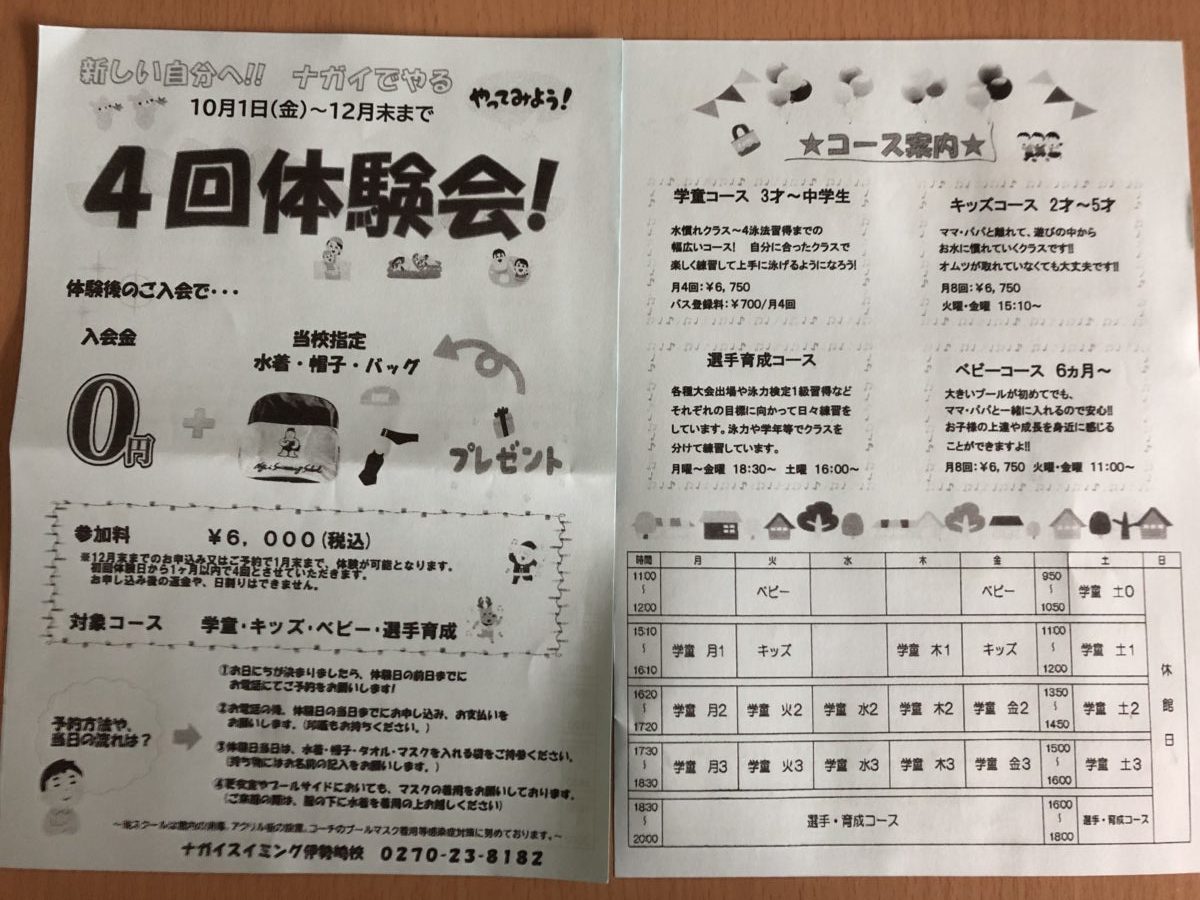 新しい自分へ!! ナガイでやる
やってみよう!
10月1日(金)~12月末まで
4回体験会!
体験後のご入会で・・・
入会金
0円
+
当校指定
水着・帽子・バッグ
プレゼント
参加料 ¥6,000(税込)
※12月末までのお申込み又はご予約で1月末まで、体験が可能となります。
初回体験日から1ヶ月以内で4回とさせていただきます。
お申し込み後の返金や、日割りはできません。
対象コース 学童・キッズ・ベビー・選手育成
予約方法や、
当日の流れは?
①お日にちが決まりましたら、体験日の前日までに
お電話にてご予約をお願いします!
②お電話の後、体験日の当日までにお申し込み、お支払いを
お願いします。(印鑑もお持ちください。)
③体験日当日は、水着・帽子・タオル・マスクを入れる袋をご持参ください。
(持ち物にはお名前の記入をお願いします。)
④更衣室やプールサイドにおいても、マスクの着用をお願いしております。
(ご来館の際は、服の下に水着を着用の上お越しください)
~当スクールは館内の消毒、アクリル板の設置、コーチのプールマスク着用等感染症対策に努めております。~
ナガイスイミング伊勢崎校 0270-23-8182
★コース案内★
学童コース 3才~中学生
水慣れクラス~4泳法習得までの
幅広いコース! 自分に合ったクラスで
楽しく練習して上手に泳げるようになろう!
月4回:¥6,750
バス登録料:¥700/月4回
キッズコース 2才~5才
ママ・パパと離れて、遊びの中から
お水に慣れていくクラスです!!
オムツが取れていなくても大丈夫です!!
月8回:¥6,750
火曜・金曜 15:10~
選手育成コース
各種大会出場や泳力検定1級習得など
それぞれの目標に向かって日々練習を
しています。泳力や学年等でクラスを
分けて練習しています。
月曜~金曜 18:30~ 土曜 16:00~
ベビーコース 6ヵ月~
大きいプールが初めてでも、
ママ・パパと一緒に入れるので安心!!
お子様の上達や成長を身近に感じる
ことができますよ!!
月8回:¥6,750 火曜・金曜 11:00~
時間 月 火 水 木 金 土 日
1100~1200 ベビー ベビー 950~1050 学童 土0
1510~1610 学童 月1 キッズ 学童 木1 キッズ 1100~1200 学童 土1
1620~1720 学童 月2 学童 火2 学童 水2 学童 木2 学童 金2 1350~1450 学童 土2
1730~1830 学童 月3 学童 火3 学童 水3 学童 木3 学童 金3 1500~1600 学童 土3
1830~2000 選手・育成コース 1600~1800 選手・育成コース
休館日